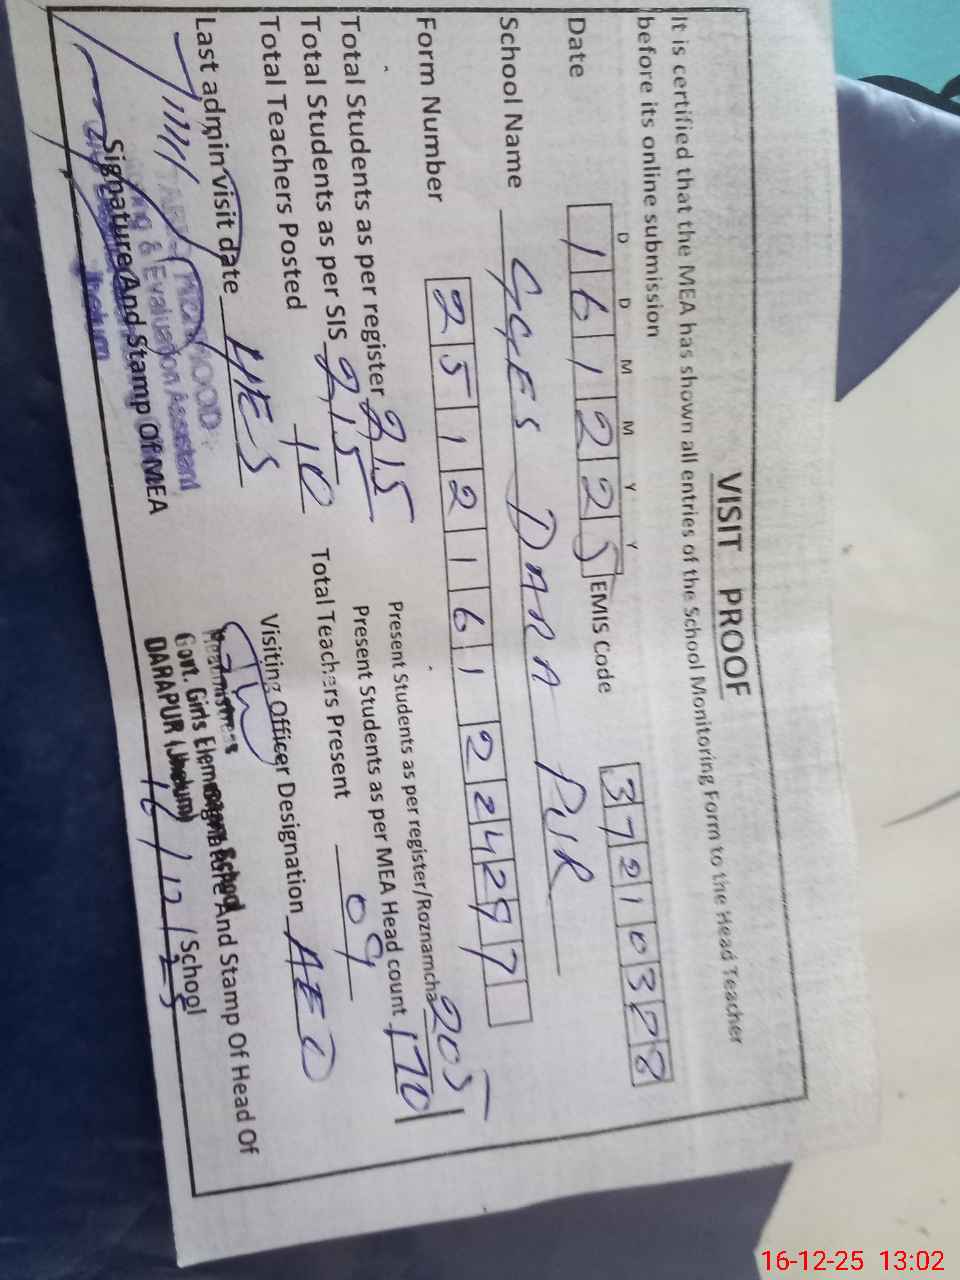 VISIT PROOF
It is certified that the MEA has shown all entries of the School Monitoring Form to the Head Teacher
before its online submission
D D M M Y Y
Date 1 6 1 2 2 5 EMIS Code 3 7 2 1 0 3 2 8
School Name GGES DARA PUR
Form Number 2 5 1 2 1 6 1 2 2 4 2 9 7
Total Students as per register 215 Present Students as per register/Roznamcha 205
Total Students as per SIS 215 Present Students as per MEA Head count 170
Total Teachers Posted 10 Total Teachers Present 09
Last admin visit date YES Visiting Officer Designation AEO
MOOD
& Evaluation Assistant
Jhelum
Signature And Stamp Of MEA
Headmistress
Govt. Girls Elementary School
DARAPUR (Jhelum)
And Stamp Of Head Of
School
16/12/25
16-12-25 13:02